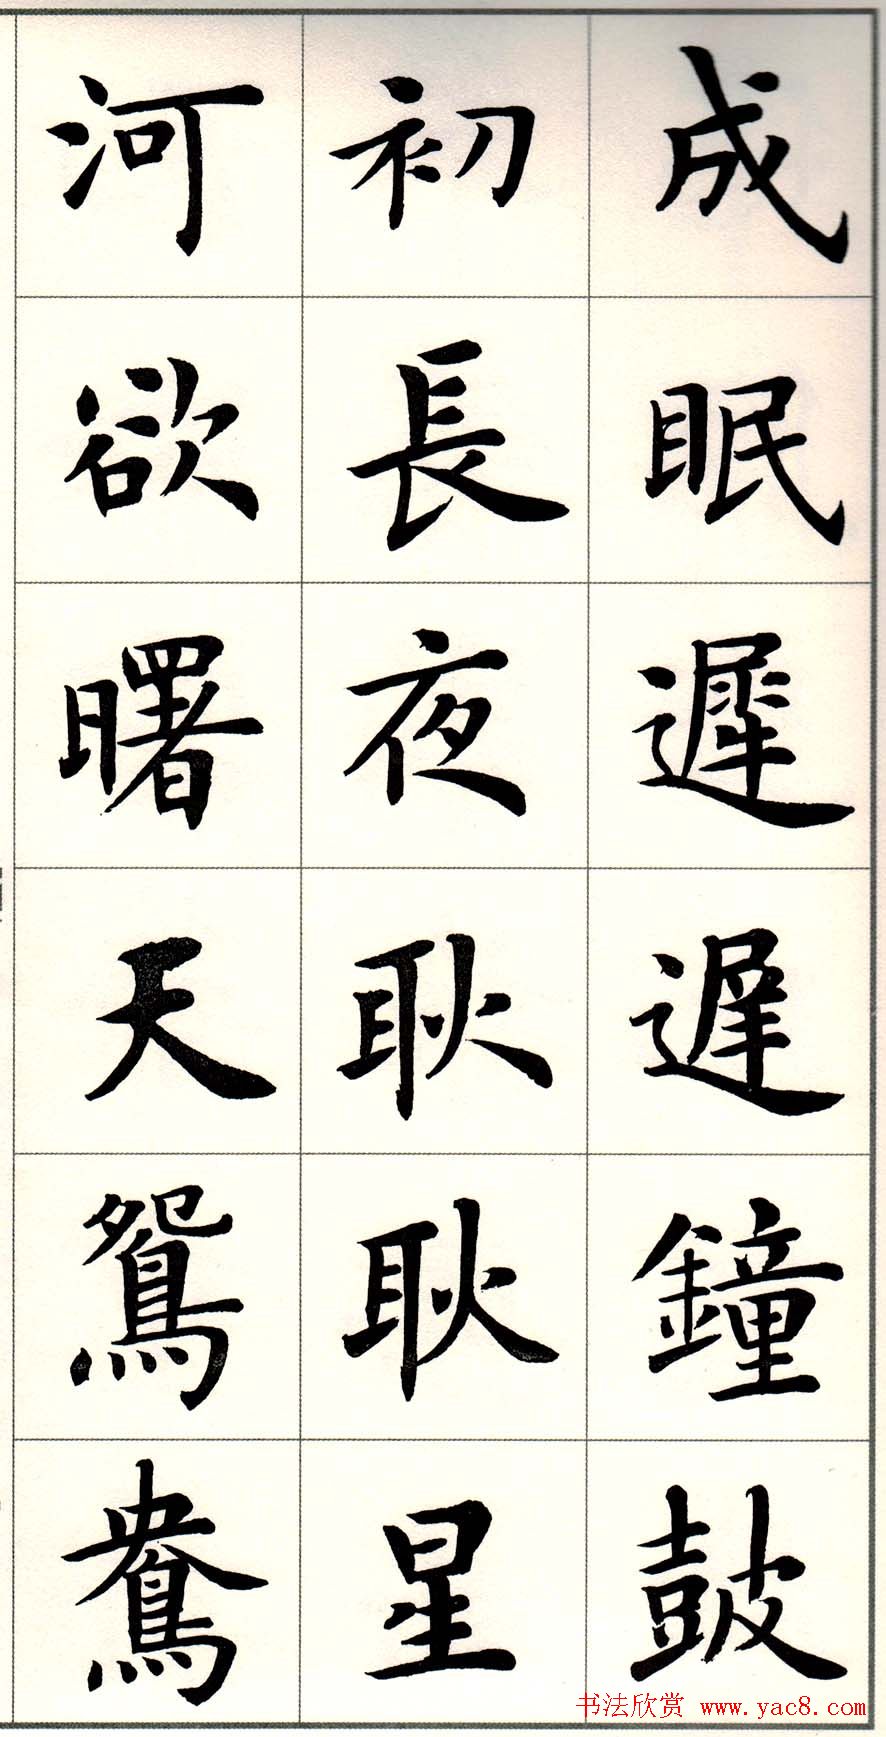 成眠遲遲鐘鼓
初長夜耿耿星
河欲曙天鴛鴦
书法欣赏 www.yac8.com